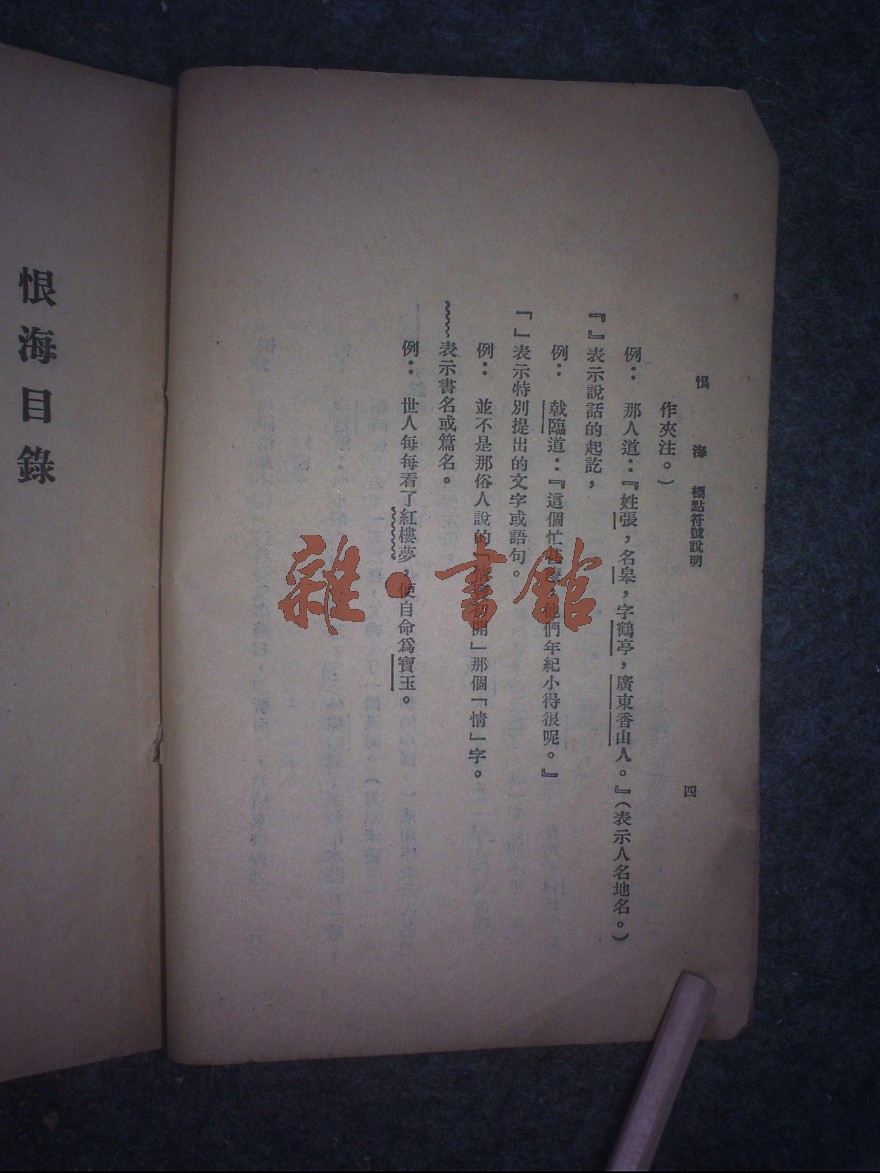 恨 海 標點符號說明 四
作夾注。）
例： 那人道：『姓張，名皋，字鶴亭，廣東香山人。』（表示人名地名。）
『』表示說話的起訖，
例： 戟臨道：『這個忙 他們年紀小得很呢。』
「」表示特別提出的文字或語句。
例： 並不是那俗人說的「情 開」那個「情」字。
﹏﹏表示書名或篇名。
例： 世人每每看了紅樓夢，便自命為寶玉。
恨海目錄
雜·書館